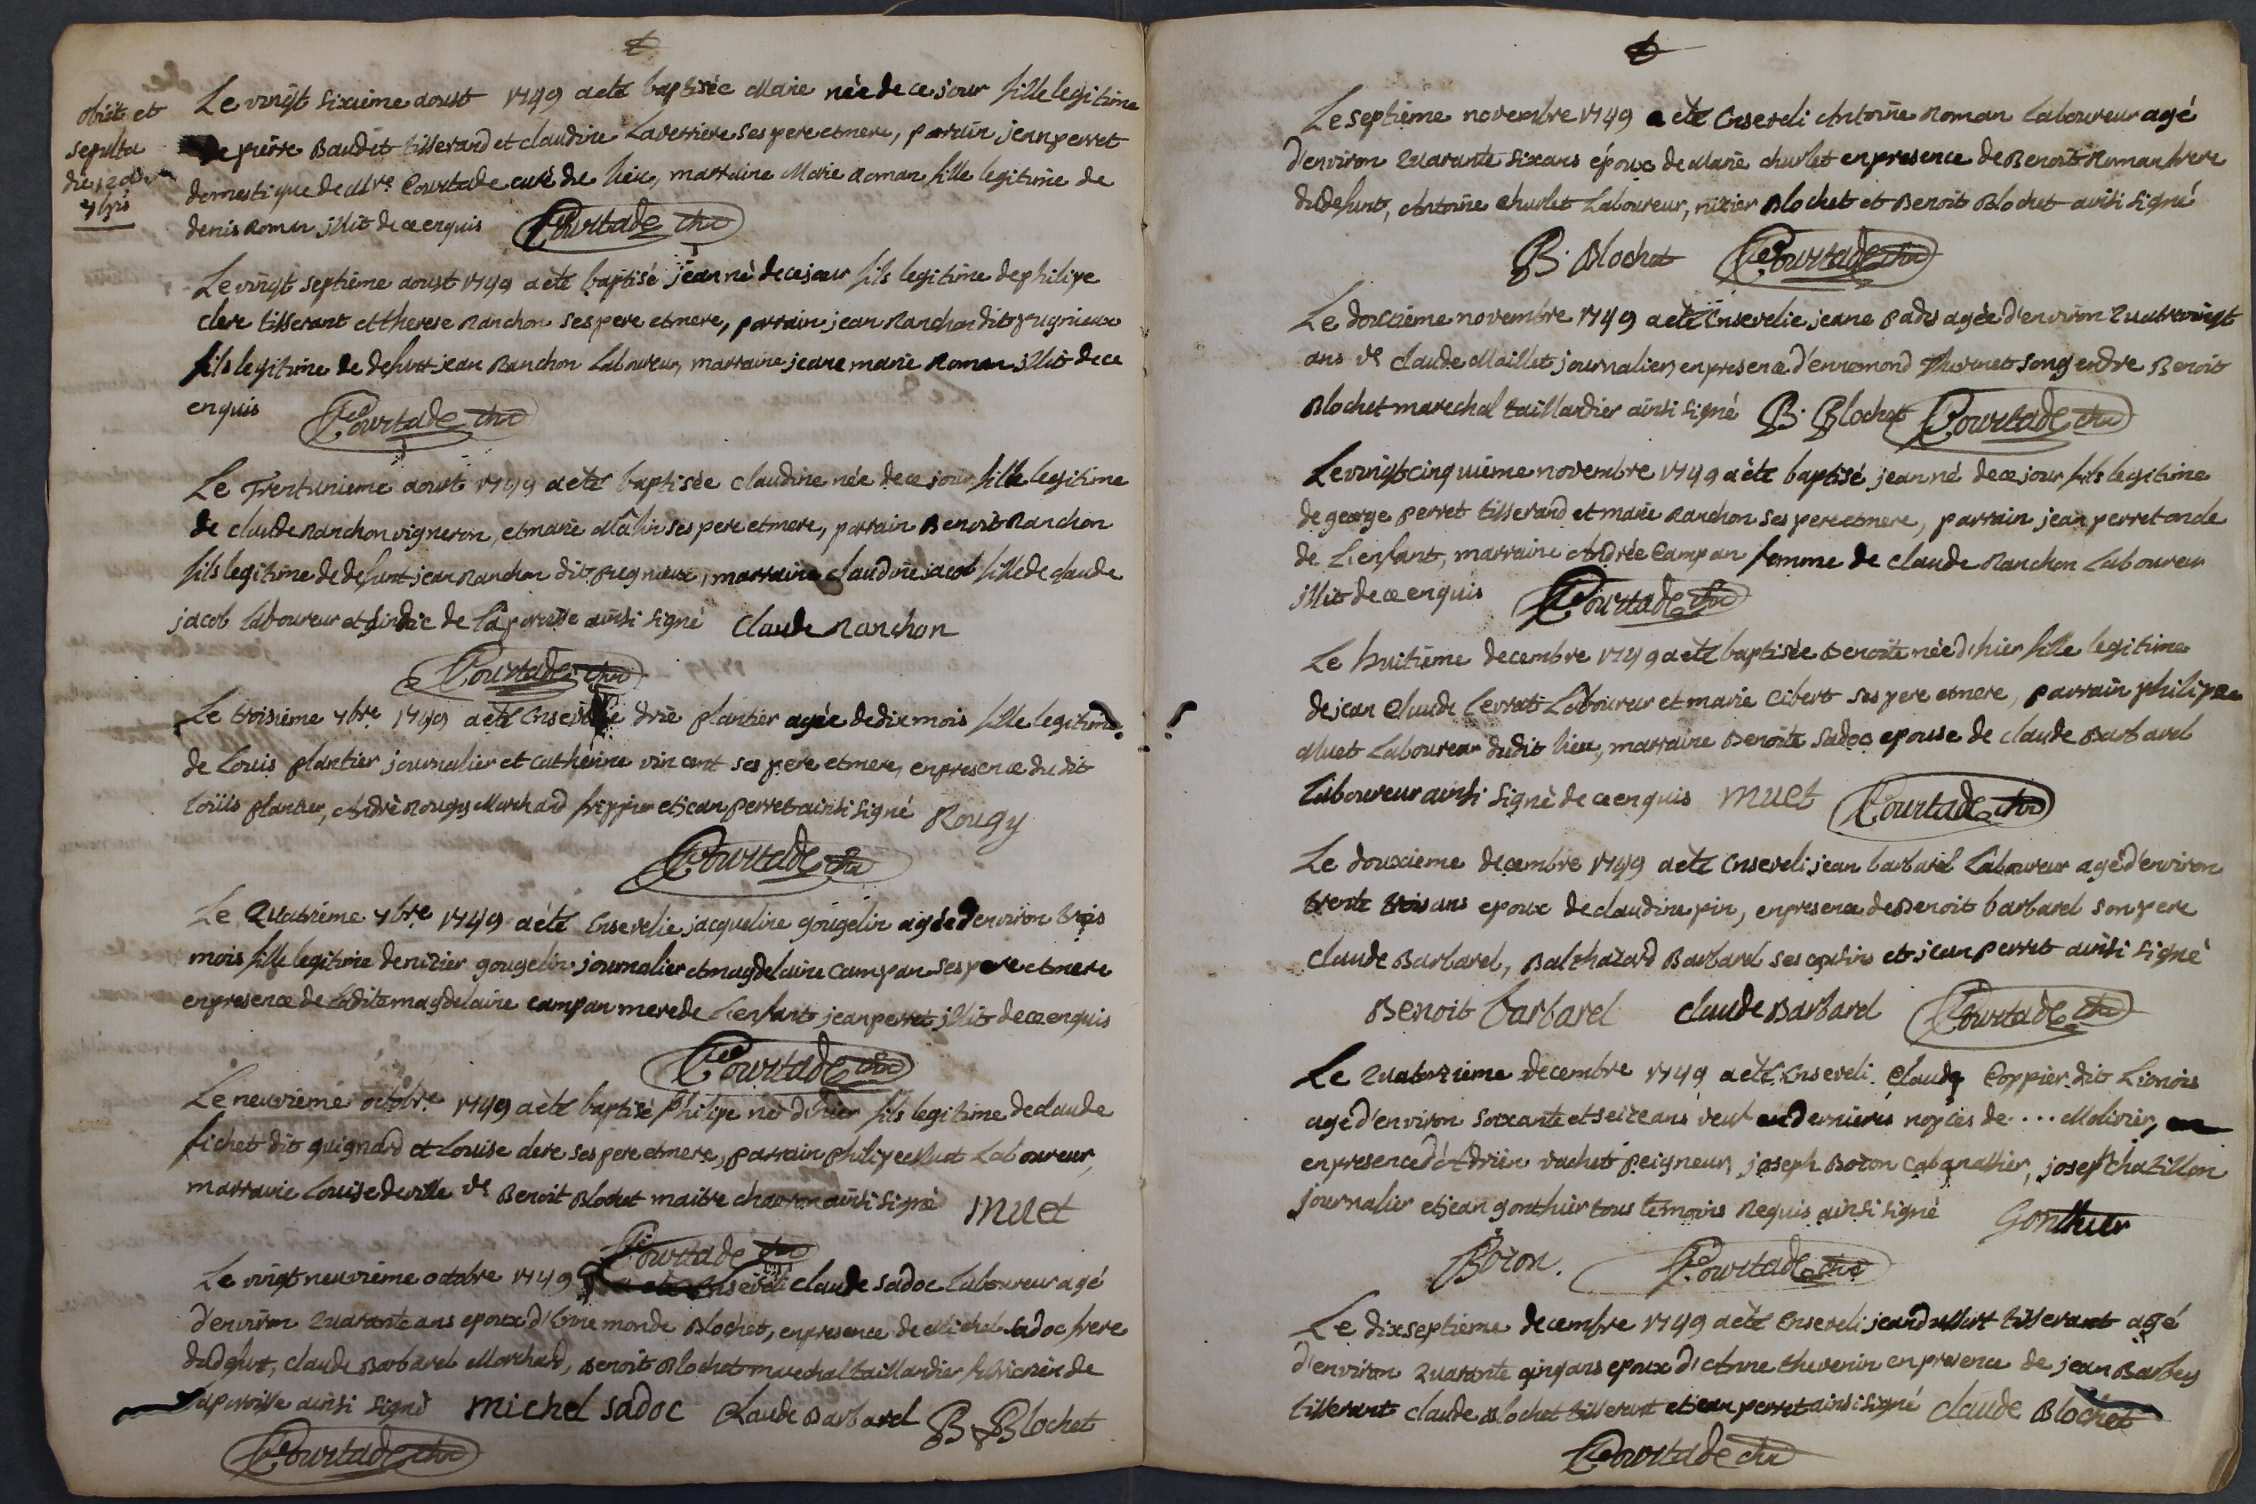 obiit et
sepulta
die
7bris
Le vingt sixième aoust 1749 a eté baptisée Marie née de ce jour fille legitime
de pierre Baudet tisserand et claudine Laverriere ses pere et mere, parrain jean perret
domestique de Mre Courtade curé du lieu, marraine Marie Roman fille legitime de
denis Roman illit de ce enquis Courtade curé
Le vingt septième aoust 1749 a eté baptisé jean né de ce jour fils legitime de philipe
clere tisserant et therese Ranchon ses pere et mere, parrain jean Ranchon dit pugnieux
fils legitime de defunt jean Ranchon Laboureur, marraine jeane marie Roman illit de ce
enquis Courtade curé
Le Trentunieme aoust 1749 a eté baptisée claudine née de ce jour fille legitime
de claude Ranchon vigneron, et marie ses pere et mere, parrain Benoit Ranchon
fils legitime de defunt jean Ranchon dit pugnieux, marraine claudine jacob fille de claude
jacob Laboureur et sindic de la paroisse ainsi signé claude Ranchon
Courtade curé
Le troisième 7bre 1749 a eté Ensevelie drie plantier agée de dix mois fille legitime
de Louis plantier journalier et catherine vincent ses pere et mere, en presence dudit
Loüis plantier, André Rougy Marchand frippier et jean perret ainsi signé Rougy
Courtade curé
Le Quatrième 7bre 1749 a été Ensevelie jacqueline gougelin agée d'environ trois
mois fille legitime de nizier gougelin journalier et magdelaine campan ses pere et mere
en presence de Ladite magdelaine campan mere de L'enfant jean perret illit de ce enquis
Courtade curé
Le neuvième octobre 1749 a été baptisé philipe né d'hier fils legitime de claude
fichet dit guignard et Louise clere ses pere et mere, parrain philipe Muet Laboureur,
marraine Louise deville ve Benoit Blochet maitre charron ainsi signé Muet
Courtade curé
Le vingt neuvième octobre 1749 a eté Enseveli claude sadoc Laboureur agé
d'environ Quarante ans epoux d'Ennemonde Blochet, en presence de Michel sadoc frere
du defunt, claude Barbarel Marchand, Benoit Blochet marechal taillandier de
la paroisse ainsi signé Michel Sadoc Claude Barbarel B. Blochet
Courtade curé
Le septième novembre 1749 a eté Enseveli Antoine Roman Laboureur agé
d'environ Quarante six ans époux de Marie churlet en presence de Benoit Roman frere
du defunt, Antoine churlet Laboureur, nizier Blochet et Benoit Blochet ainsi signé
B. Blochet Courtade curé
Le douzième novembre 1749 a eté Ensevelie jeane agée d'environ Quatrevingt
ans ve claude Maillet journalier, en presence d'ennemond thevenet son gendre Benoit
Blochet marechal taillandier ainsi signé B. Blochet Courtade curé
Le vingt cinquième novembre 1749 a été baptisé jean né de ce jour fils legitime
de george perret tisserand et marie Ranchon ses pere et mere, parrain jean perret oncle
de L'enfant, marraine Andrée Campan femme de claude Ranchon Laboureur
illit de ce enquis Courtade curé
Le huitième decembre 1749 a eté baptisée Benoite née d'hier fille legitime
de jean Claude Levrat Laboureur et marie Cibert ses pere et mere, parrain philipe
Muet Laboureur dudit lieu, marraine Benoite Sadoc epouse de claude Barbarel
Laboureur ainsi signé de ce enquis Muet Courtade curé
Le douxieme decembre 1749 a eté Enseveli jean barbarel Laboureur agé d'environ
trente trois ans epoux de claudine pin, en presence de Benoit barbarel son pere
claude Barbarel, Balthazard Barbarel ses cousins et jean perret ainsi signé
Benoit barbarel Claude Barbarel Courtade curé
Le Quatorzieme decembre 1749 a eté Enseveli Claude Coppier dit Lionois
agé d'environ soixante et seize ans veuf en dernieres nopces de .... Molivier,
en presence d'Adrien vachet peigneur, joseph Boron Cabanattier, joseph chatillon
journalier et jean gonthier tous temoins Requis ainsi signé Gonthier
Boron. Courtade curé
Le dixseptième decembre 1749 a eté Enseveli jean tisserant agé
d'environ Quarante cinq ans epoux d'Anne thevenin en presence de jean Barbey
tisserant claude Blochet tisserant et jean perret ainsi signé Claude Blochet
Courtade curé